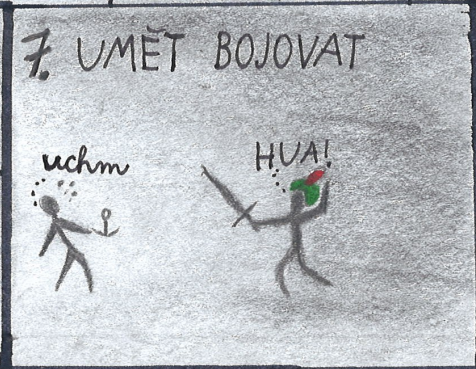 7. UMĚT BOJOVAT
uchm
HUA!